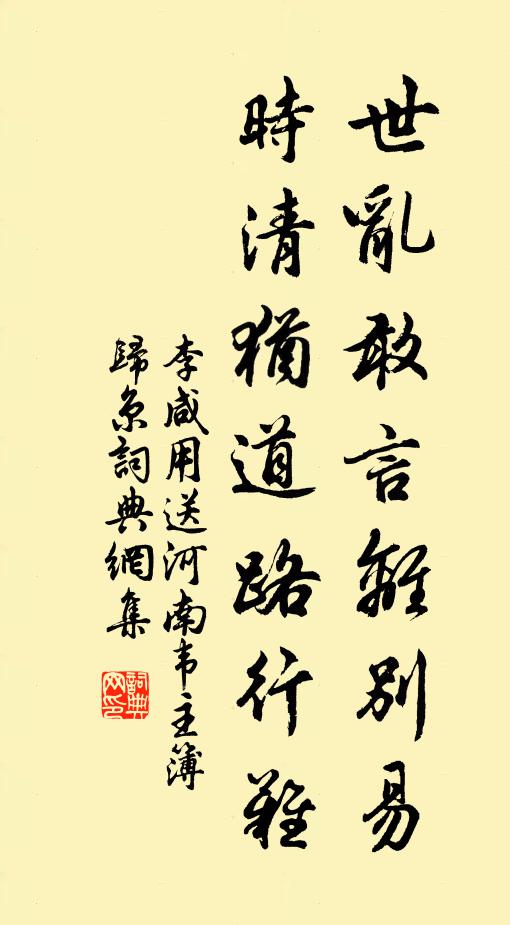 世亂敢言離別易
時清猶道路行難
李咸用送河南韦主簿
歸京詞典網集
詞典
网印